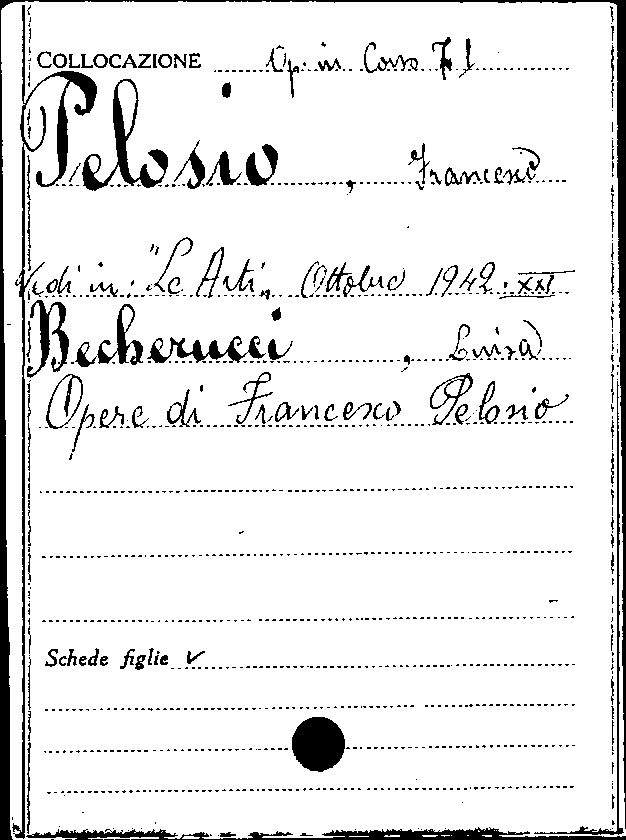 COLLOCAZIONE Op. in Corso F 1
Pelosio, Francesco
Vedi in: "Le Arti„ Ottobre 1942. XXI
Becherucci, Luisa
Opere di Francesco Pelosio
Schede figlie ✓